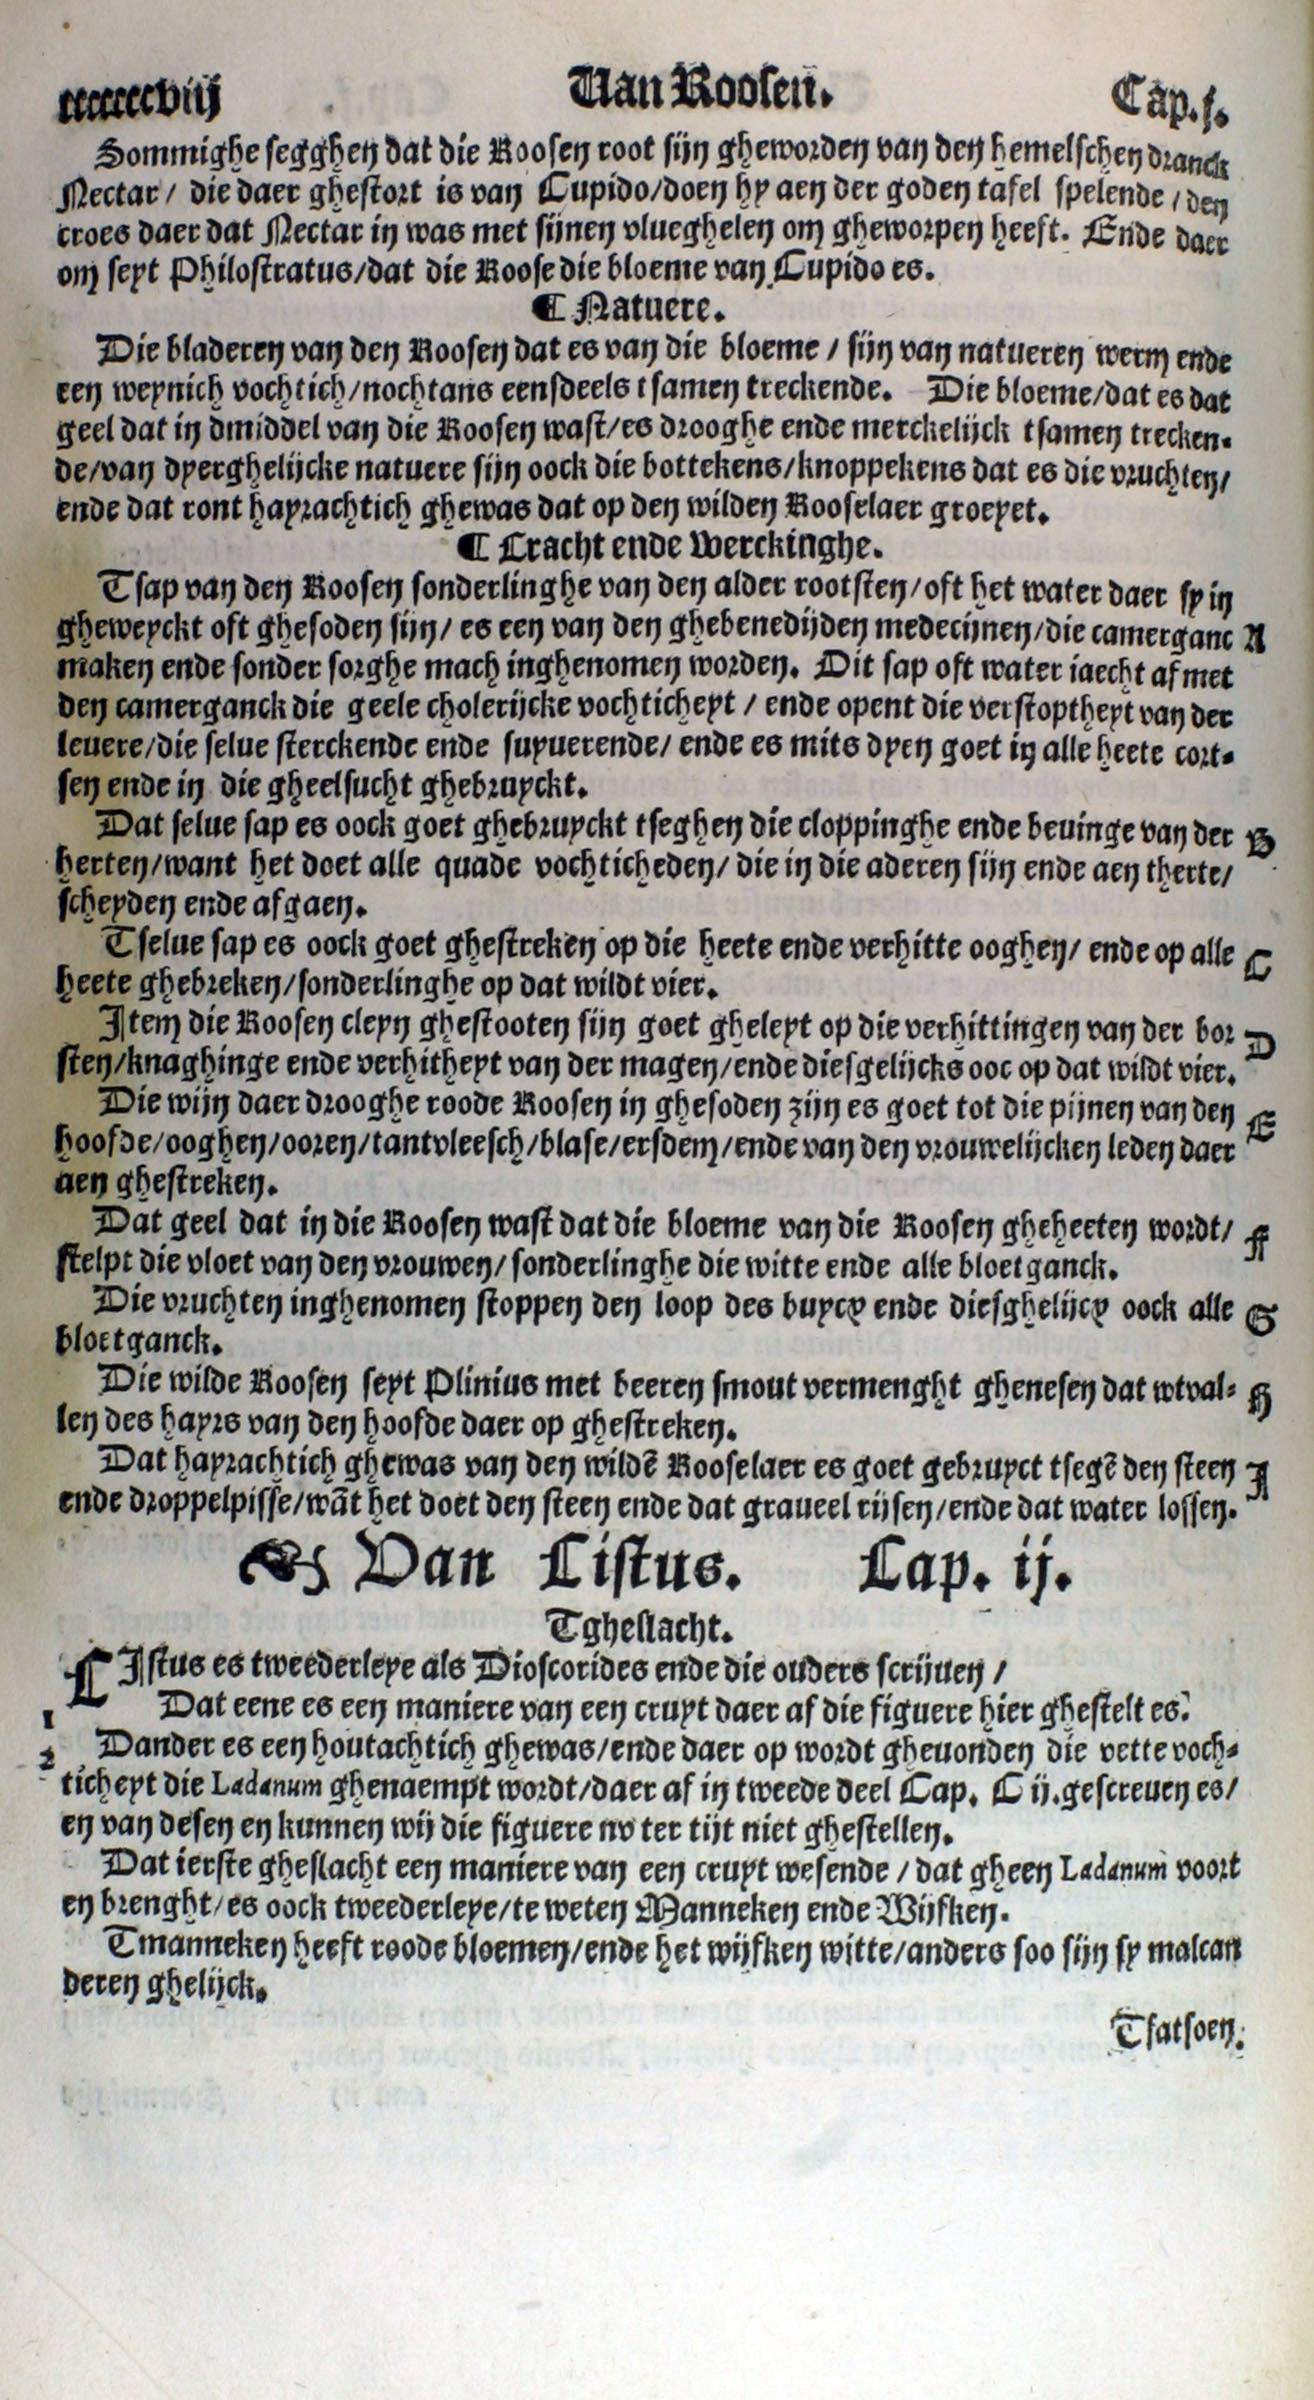 ccccccviij Van Roosen. Cap.j.
Sommighe segghen dat die Roosen root sijn gheworden van den hemelschen dranck
Nectar/ die daer ghestort is van Cupido/doen hy aen der goden tafel spelende/den
croes daer dat Nectar in was met sijnen vlueghelen om gheworpen heeft. Ende daer
om seyt Philostratus/dat die Roose die bloeme van Cupido es.
¶ Natuere.
Die bladeren van den Roosen dat es van die bloeme/ sijn van natueren werm ende
een weynich vochtich/nochtans eensdeels tsamen treckende. Die bloeme/dat es dat
geel dat in dmiddel van die Roosen wast/es drooghe ende merckelijck tsamen trecken-
de/van dyerghelijcke natuere sijn oock die bottekens/knoppekens dat es die vruchten/
ende dat ront hayrachtich ghewas dat op den wilden Rooselaer groeyet.
¶ Cracht ende Werckinghe.
Tsap van den Roosen sonderlinghe van den alder rootsten/oft het water daer sy in
gheweyckt oft ghesoden sijn/ es een van den ghebenedijden medecijnen/die camerganc A
maken ende sonder sorghe mach inghenomen worden. Dit sap oft water iaecht af met
den camerganck die geele cholerijcke vochticheyt/ ende opent die verstoptheyt van der
leuere/die selue sterckende ende suyuerende/ ende es mits dyen goet in alle heete cort-
sen ende in die gheelsucht ghebruyckt.
Dat selue sap es oock goet ghebruyckt tseghen die cloppinghe ende beuinge van der B
herten/want het doet alle quade vochticheden/ die in die aderen sijn ende aen therte/
scheyden ende afgaen.
Tselue sap es oock goet ghestreken op die heete ende verhitte ooghen/ ende op alle C
heete ghebreken/sonderlinghe op dat wildt vier.
Item die Roosen cleyn ghestooten sijn goet gheleyt op die verhittingen van der bor D
sten/knaghinge ende verhitheyt van der magen/ende diesgelijcks ooc op dat wildt vier.
Die wijn daer drooghe roode Roosen in ghesoden zijn es goet tot die pijnen van den E
hoofde/ooghen/ooren/tantvleesch/blase/ersdem/ende van den vrouwelijcken leden daer
aen ghestreken.
Dat geel dat in die Roosen wast dat die bloeme van die Roosen gheheeten wordt/ F
stelpt die vloet van den vrouwen/ sonderlinghe die witte ende alle bloetganck.
Die vruchten inghenomen stoppen den loop des buycx ende diesghelijcx oock alle G
bloetganck.
Die wilde Roosen seyt Plinius met beeren smout vermenght ghenesen dat wtval- H
len des hayrs van den hoofde daer op ghestreken.
Dat hayrachtich ghewas van den wildē Rooselaer es goet gebruyct tsegē den steen I
ende droppelpisse/wāt het doet den steen ende dat graueel rijsen/ende dat water lossen.
Van Cistus. Cap. ij.
Tgheslacht.
CIstus es tweederleye als Dioscorides ende die ouders scrijuen/
1 Dat eene es een maniere van een cruyt daer af die figuere hier ghestelt es.
2 Dander es een houtachtich ghewas/ende daer op wordt gheuonden die vette voch-
ticheyt die Ladanum ghenaempt wordt/daer af in tweede deel Cap. C ij.gescreuen es/
en van desen en kunnen wij die figuere nv ter tijt niet ghestellen.
Dat ierste gheslacht een maniere van een cruyt wesende/ dat gheen Ladanum voort
en brenght/es oock tweederleye/te weten Manneken ende Wijfken.
Tmanneken heeft roode bloemen/ende het wijfken witte/anders soo sijn sy malcan
deren ghelijck.
Tfatsoen.